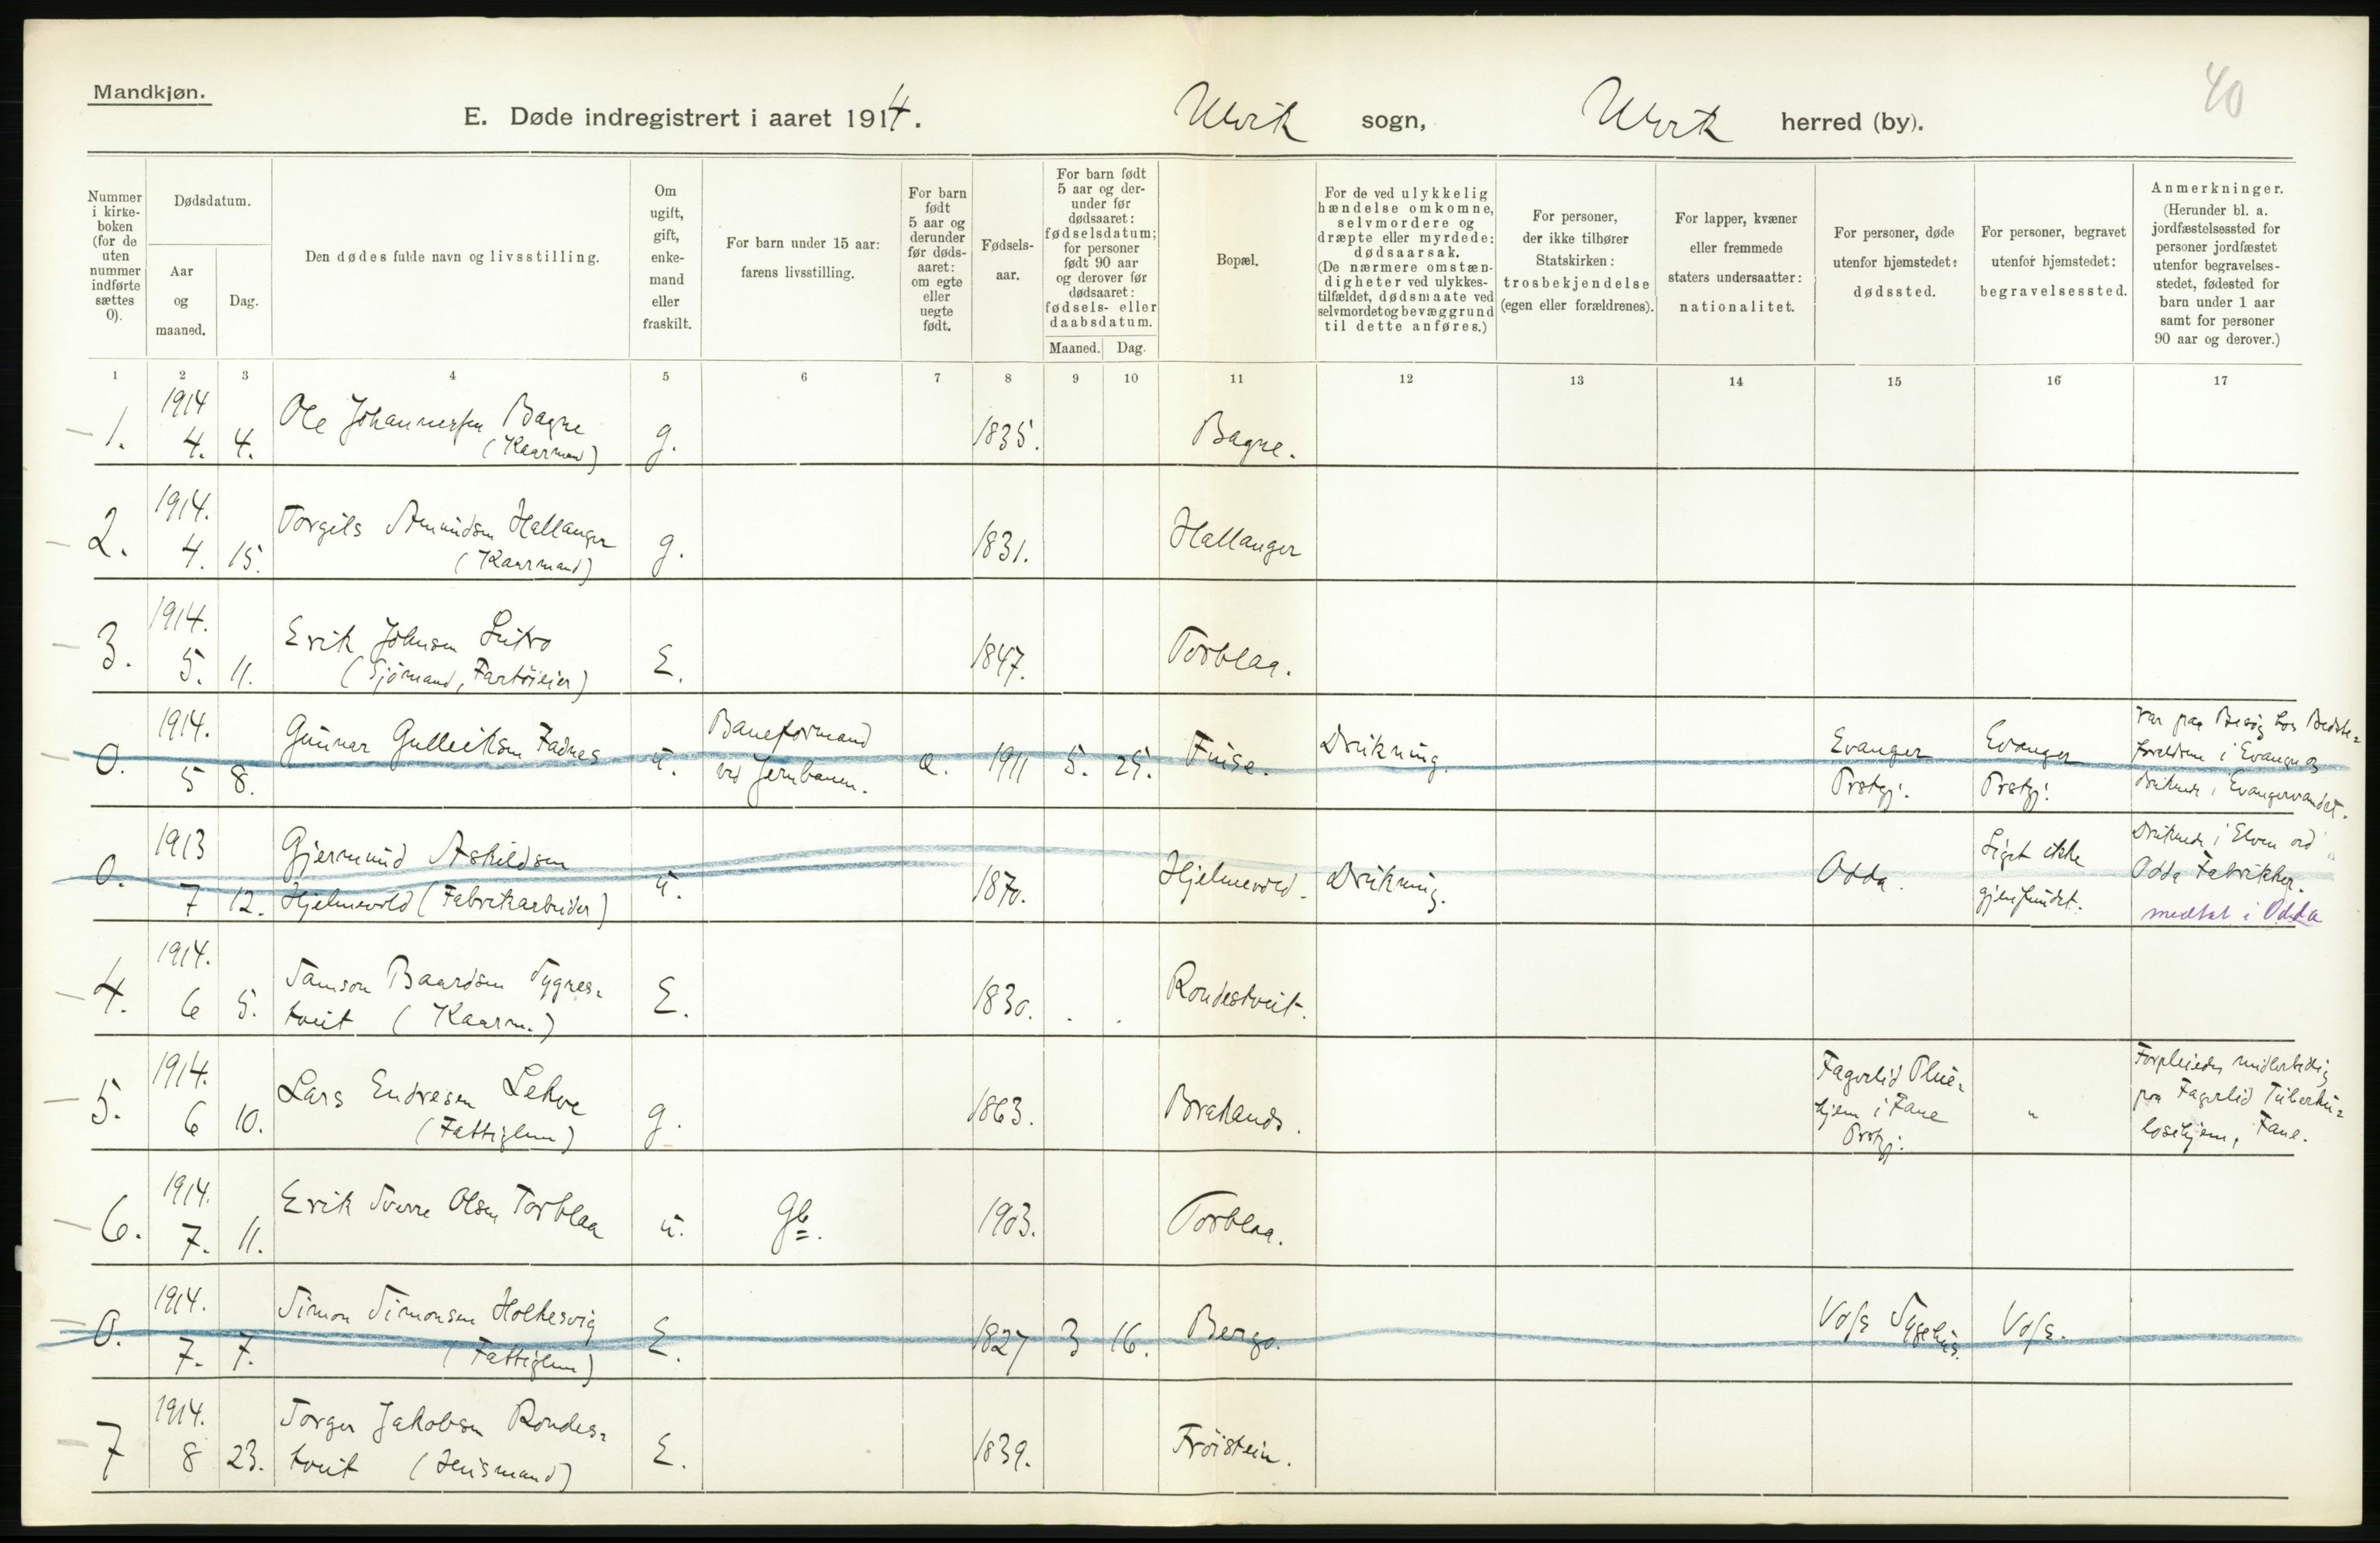 Mandkjøn.
40
E. Døde indregistrert i aaret 1914. Ulvik sogn, Ulvik herred (by).
Nummer i kirke-boken (for de uten nummer indførte sættes 0).
Dødsdatum.
Aar og maaned.
Dag.
Den dødes fulde navn og livsstilling.
Om ugift, gift, enke-mand eller fraskilt.
For barn under 15 aar: farens livsstilling.
For barn født 5 aar og derunder før døds-aaret: om egte eller uegte født.
Fødsels-aar.
For barn født 5 aar og der-under før dødsaaret: fødselsdatum; for personer født 90 aar og derover før dødsaaret: fødsels- eller daabsdatum.
Maaned. Dag.
Bopæl.
For de ved ulykkelig hændelse omkomne, selvmordere og dræpte eller myrdede: dødsaarsak. (De nærmere omstæn-digheter ved ulykkes-tilfældet, dødsmaate ved selvmordet og bevæggrund til dette anføres.)
For personer, der ikke tilhører Statskirken: trosbekjendelse (egen eller forældrenes).
For lapper, kvæner eller fremmede staters undersaatter: nationalitet.
For personer, døde utenfor hjemstedet: dødssted.
For personer, begravet utenfor hjemstedet: begravelsessted.
Anmerkninger. (Herunder bl. a. jordfæstelsessted for personer jordfæstet utenfor begravelses-stedet, fødested for barn under 1 aar samt for personer 90 aar og derover.)
1 2 3 4 5 6 7 8 9 10 11 12 13 14 15 16 17
1. 1914 4. 4. Ole Johannessen Bagne (Kaarmand) g. 1835. Bagne.
2. 1914. 4. 15. Torgils Amundsen Hallanger (Kaarmand) g. 1831. Hallanger
3. 1914. 5. 11. Erik Johnsen Lutro (Sjømand, Fartøieier) E. 1847. Torblaa.
0. 1914. 5 8. Gunnar Gulleiksen Fadnes u. Baneformand ved Jernbanen. e. 1911 5. 25. Finse. Drukning. Evanger Prstgj. Evanger Prstgj. Var paa Besøg hos Bedste=
foreldrene i Evanger og
druknede i Evangervandet.
0. 1913 7 12. Gjermund Askildsen Hjelmevold (Fabrikarbeider) u. 1870. Hjelmevold. Drukning. Odda. Liget ikke gjenfundet. Druknede i Elven ved
Odda Fabrikker.
medtat i Odda
4. 1914. 6 5. Samson Baardsen Sygnes=
tveit (Kaarm.) E. 1830. . . Rondestveit.
5. 1914. 6 10. Lars Endresen Lekve (Fattiglem) g. 1863. Brakanes. Fagerlid Pleie=
hjem i Fane Prstgj. " Forpleiedes midlertidig
paa Fagerlid Tuberku=
losehjem, Fane.
6. 1914. 7. 11. Erik Sverre Olsen Torblaa u. Gb. 1903. Torblaa.
0. 1914. 7. 7. Simon Simonsen Holkesvig (Fattiglem) E. 1827 3 16. Bergo. Voss Sygehus. Voss.
7 1914. 8 23. Torger Jakobsen Rondes=
tveit (Husmand) E. 1839. Frøistein.